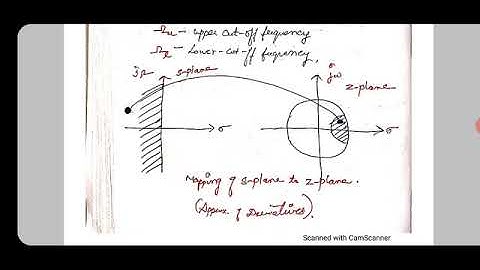 Ωu - upper cut-off frequency
Ωl - Lower-cut-off frequency.
jΩ s-plane σ
jω z-plane
σ σ
Mapping of s-plane to z-plane.
(Approx. of Derivatives).
Scanned with CamScanner